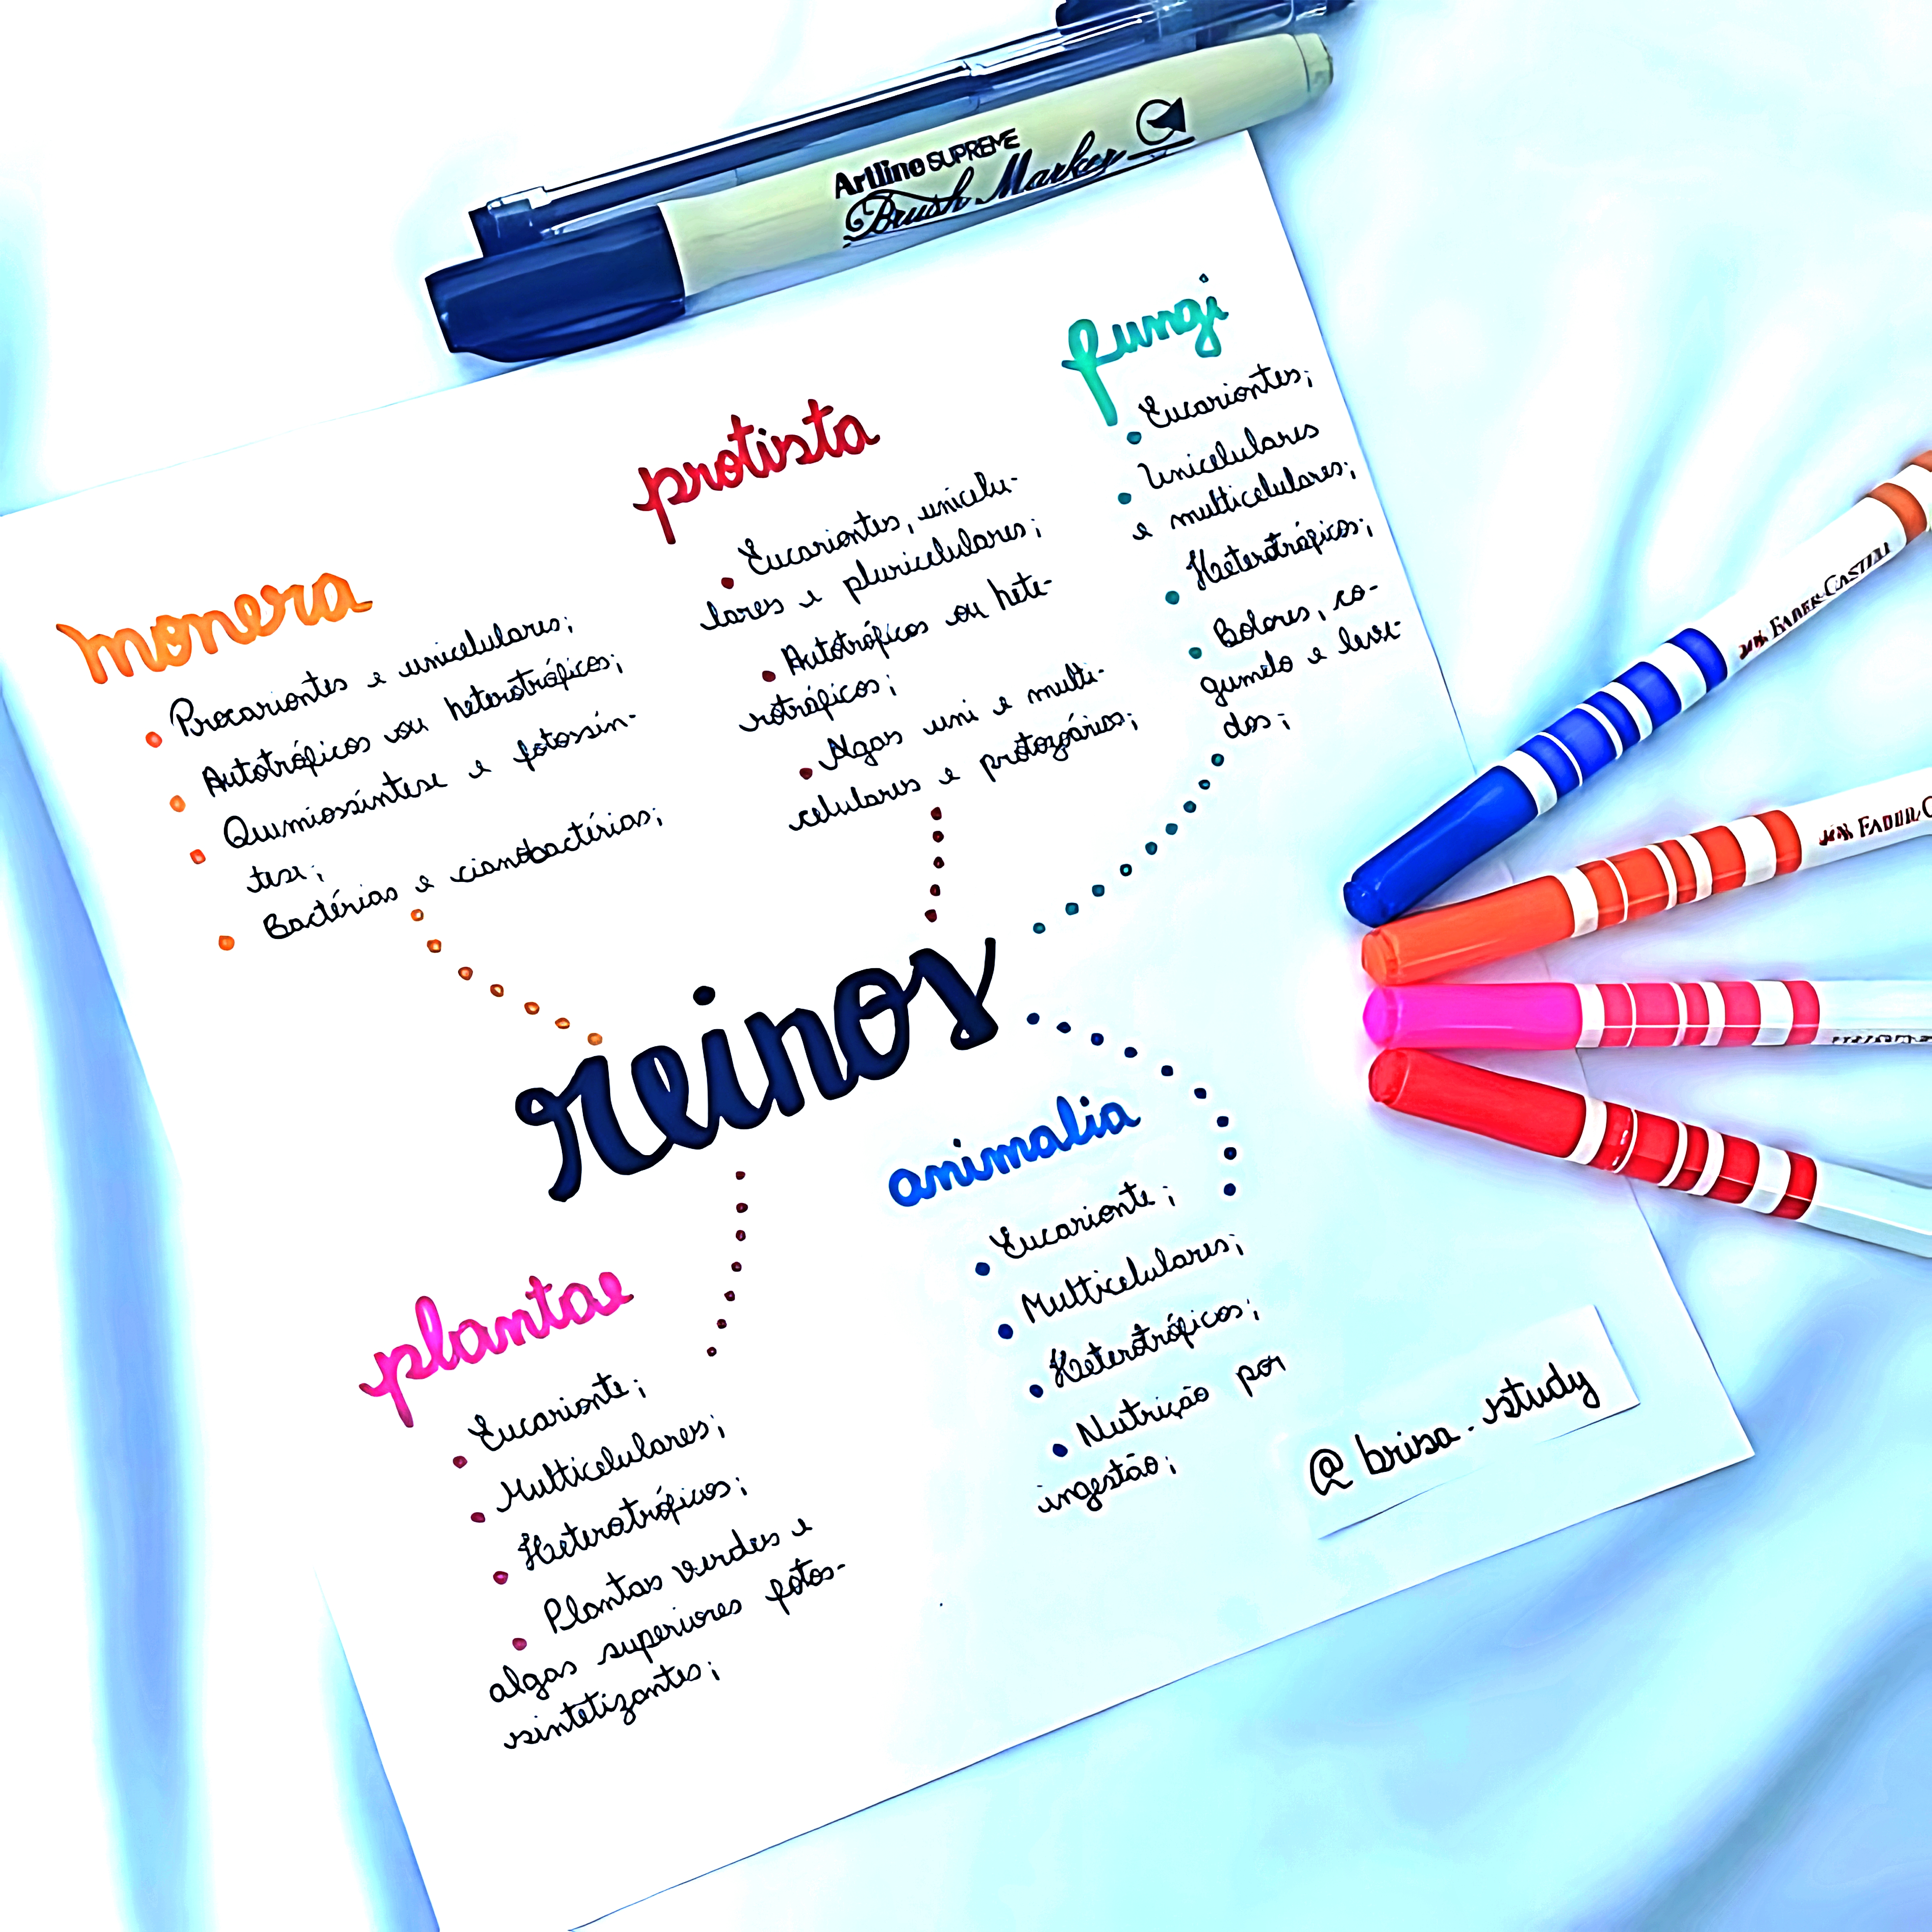 Artline SUPREME
Brush Marker
fungi
Eucariontes;
Unicelulares
e multicelulares;
Heterotróficos;
Bolores, co-
gumelo e leve-
dos;
protista
Eucariontes, unicelu-
lares e pluricelulares;
Autotróficos ou hete-
rotróficos;
Algas uni e multi-
celulares e protozoários;
monera
Procariontes e unicelulares;
Autotróficos ou heterotróficos;
Quimiossíntese e fotossín-
tese;
Bactérias e cianobactérias;
reinos
animalia
Eucarionte;
Multicelulares;
Heterotróficos;
Nutrição por
ingestão;
plantae
Eucarionte;
Multicelulares;
Heterotróficos;
Plantas verdes e
algas superiores fotos-
sintetizantes;
@brisa.study
FABER-CASTELL
FABER-C